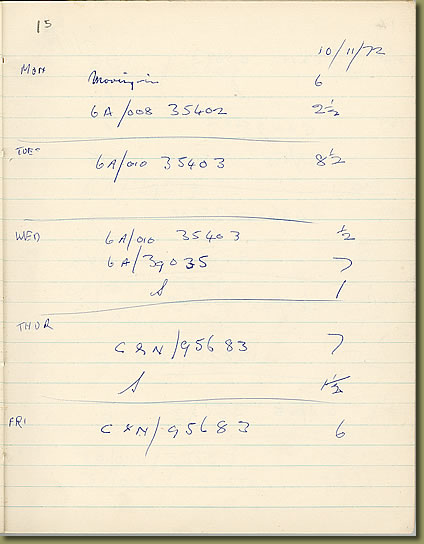 15
10/11/72
MON Moving-in 6
6A/008 35402 2½
TUES 6A/010 35403 8½
WED 6A/010 35403 ½
6A/39035 7
S 1
THUR C&N/95683 7
S 1½
FRI C&N/95683 6